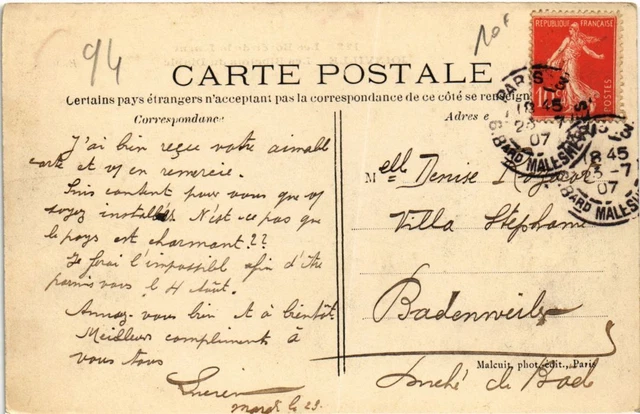 94
10F
RÉPUBLIQUE FRANÇAISE
POSTES
CARTE POSTALE
Certains pays étrangers n'acceptant pas la correspondance de ce côté se renseign
Correspondance
Adres e
PARIS
18 45
23 -7
07
BARD MALESHERBES
18 45
-7
07
BARD MALES
J'ai bien reçue votre aimable
carte et vs en remercie.
Suis content pour vous que vs
soyez installés N'est-ce pas que
le pays est charmant??
Je ferai l'impossibl afin d'être
parmis vous le 4 Août.
Amusez-vous bien et à bientôt
Meilleurs compliments à
vous tous
Lucien
mardi le 23.
Melle Denise
Villa Stéphanie
Badenweiler
Duché de Bade
Malcuit, phot. édit., Paris